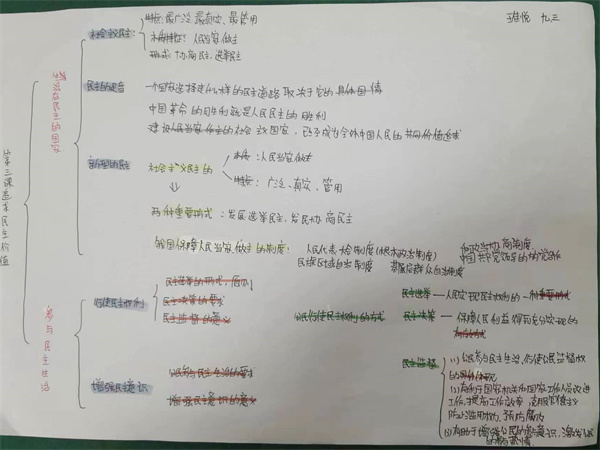 九三
第三课追求民主价值
生活在民主的国家
社会主义民主：
特点：最广泛 最真实、最管用
本质特征：人民当家做主
形式：协商民主、选举民主
民主的足音
一个国家选择走什么样的民主道路 取决于它的具体国情
中国革命的胜利就是人民民主的胜利
建设人民当家作主的社会主义国家，已经成为全体中国人民的共同价值追求
新型的民主
社会主义民主的
本质：人民当家做主
特点：广泛、真实、管用
两种重要形式：发展选举民主，发展协商民主
我国保障人民当家做主的制度：
人民代表大会制度（根本政治制度）
民族区域自治制度
基层群众自治制度
中国共产党领导的
政治协商制度
参与民主生活
行使民主权利
民主选举的形式，原则
民主决策的要求
民主监督的意义
公民行使民主权利的方式
民主选举 — 人民实现民主权利的一种重要形式
民主决策 — 保障人民利益得到充分实现的
民主监督
增强民主意识
公民参与民主生活的要求
增强民主意识的意义
(1)公民参与民主生活，行使民主监督权
(2)有利于国家机关和国家工作人员改进
工作，提高工作效率，克服官僚主义
防止滥用权力，预防腐败
(3)有助于增强公民的 意识，激发